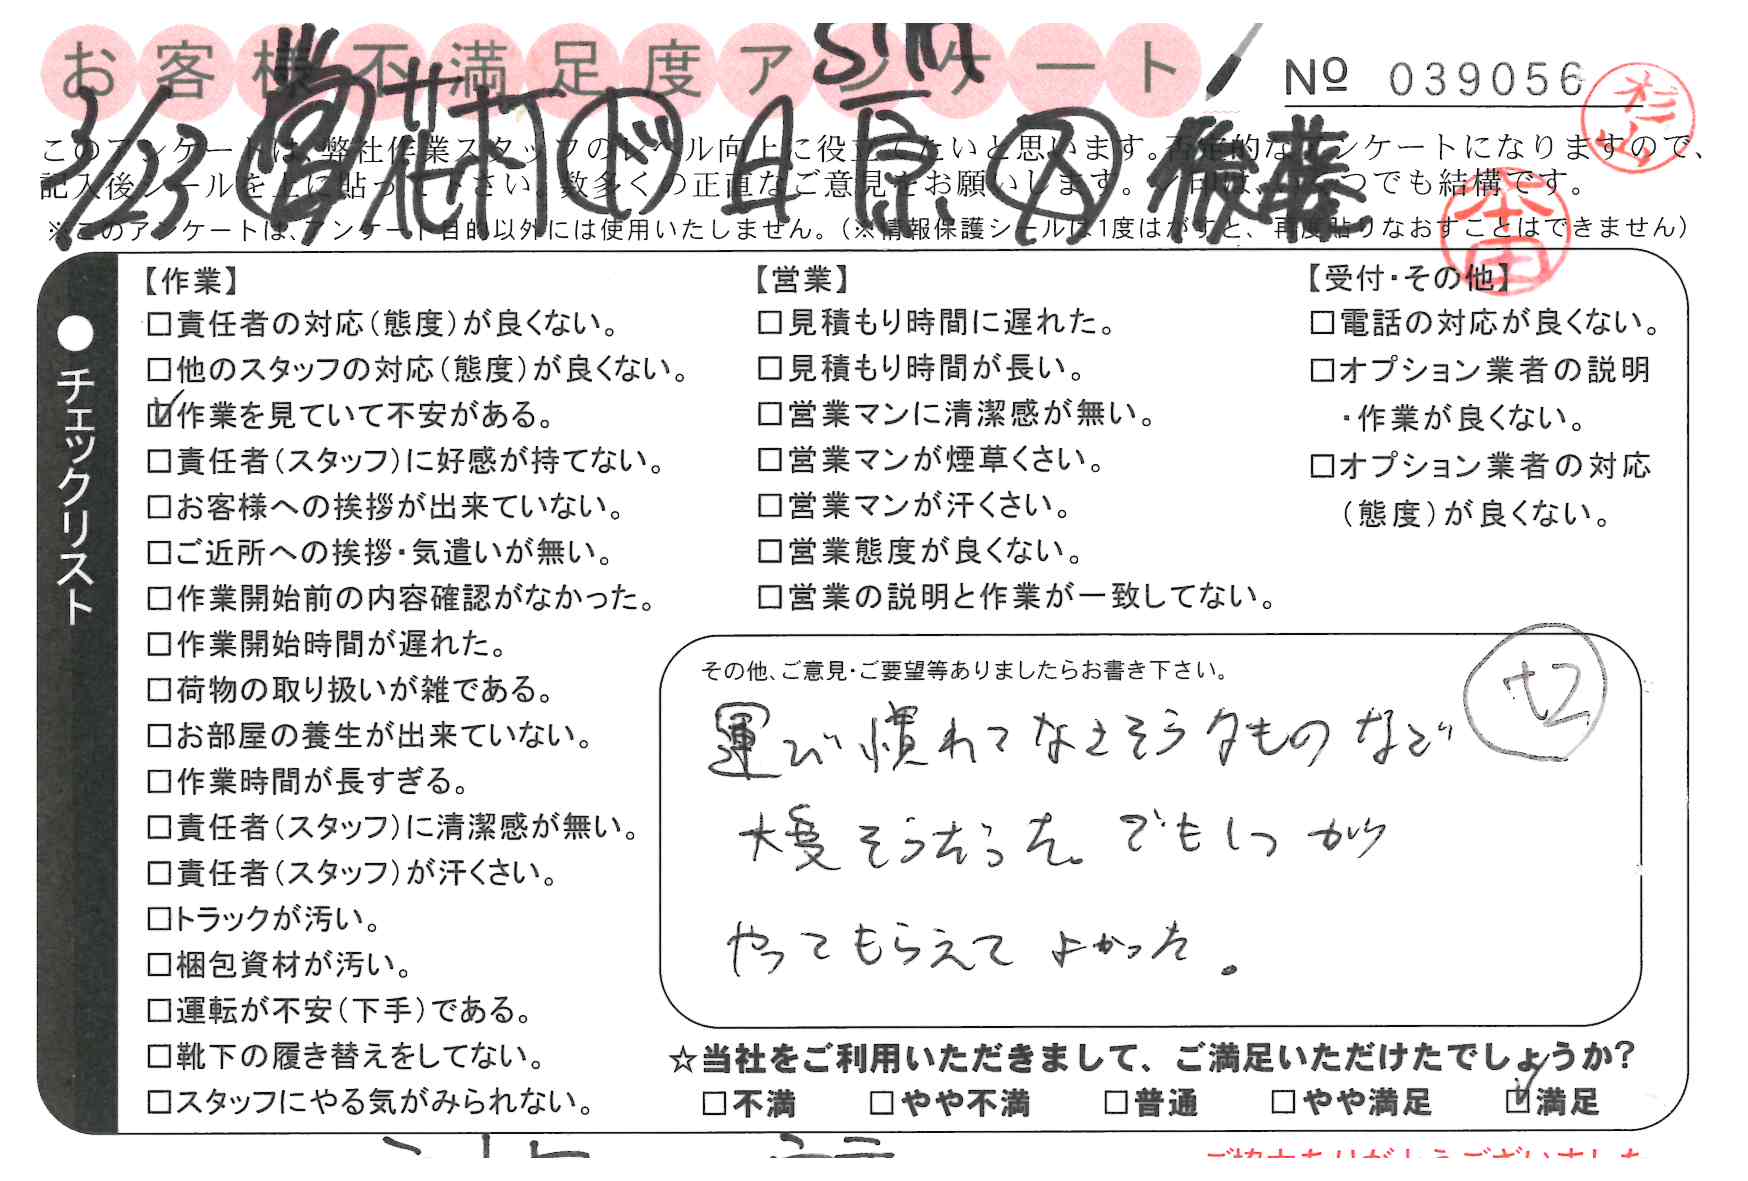 お客様不満足度アンケート
№ 039056
杉山
3/23 営 花村 ド 日原 ス 後藤
このアンケートは、弊社作業スタッフのレベル向上に役立てたいと思います。否定的なアンケートになりますので、
記入後シールを上に貼って下さい。数多くの正直なご意見をお願いします。
※このアンケートは、アンケート目的以外には使用いたしません。(※情報保護シールは1度はがすと、再度貼りなおすことはできません)
本田
●チェックリスト
【作業】
□責任者の対応(態度)が良くない。
□他のスタッフの対応(態度)が良くない。
☑作業を見ていて不安がある。
□責任者(スタッフ)に好感が持てない。
□お客様への挨拶が出来ていない。
□ご近所への挨拶・気遣いが無い。
□作業開始前の内容確認がなかった。
□作業開始時間が遅れた。
□荷物の取り扱いが雑である。
□お部屋の養生が出来ていない。
□作業時間が長すぎる。
□責任者(スタッフ)に清潔感が無い。
□責任者(スタッフ)が汗くさい。
□トラックが汚い。
□梱包資材が汚い。
□運転が不安(下手)である。
□靴下の履き替えをしてない。
□スタッフにやる気がみられない。
【営業】
□見積もり時間に遅れた。
□見積もり時間が長い。
□営業マンに清潔感が無い。
□営業マンが煙草くさい。
□営業マンが汗くさい。
□営業態度が良くない。
□営業の説明と作業が一致してない。
【受付・その他】
□電話の対応が良くない。
□オプション業者の説明
・作業が良くない。
□オプション業者の対応
(態度)が良くない。
その他、ご意見・ご要望等ありましたらお書き下さい。
運び慣れてなさそうなものなど
大変そうだった。でもしっかり
やってもらえてよかった。
☆当社をご利用いただきまして、ご満足いただけたでしょうか?
□不満 □やや不満 □普通 □やや満足 ☑満足
ご協力ありがとうございました